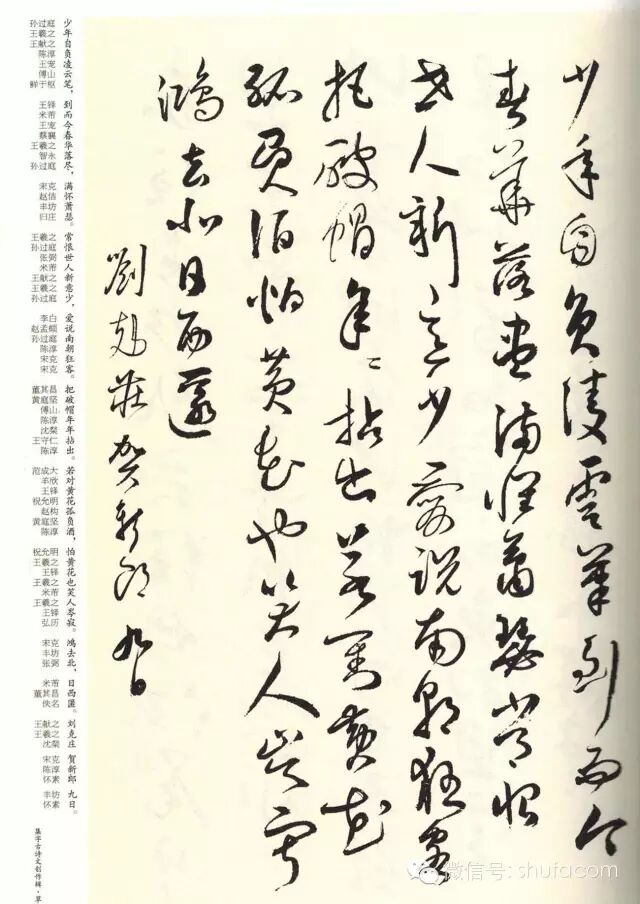 少年自負陵雲筆到而今
春華落盡滿懷蕭瑟常恨
世人新意少愛說南朝狂客
把破帽年々拈出若對黃花
孤負酒怕黃花也笑人岑寂
鴻去北日西匿
劉克莊賀新郎 九日
少年自负凌云笔，到而今春华落尽，满怀萧瑟。常恨世人新意少，爱说南朝狂客。把破帽年年拈出。若对黄花孤负酒，怕黄花也笑人岑寂。鸿去北，日西匿。刘克庄 贺新郎 九日。
孙过庭
王羲之
王献之
陈淳
王宠
傅山
鲜于枢
王铎
米芾
王宠
蔡襄
王羲之
智永
孙过庭
宋克
赵佶
丰坊
归庄
王羲之
孙过庭
张弼
米芾
王献之
王羲之
孙过庭
李白
赵孟頫
孙过庭
陈淳
宋克
宋克
董其昌
黄庭坚
傅山
陈淳
沈粲
王守仁
陈淳
范成大
羊欣
王铎
祝允明
赵构
黄庭坚
陈淳
祝允明
王羲之
王铎
王羲之
米芾
王羲之
王铎
弘历
宋克
丰坊
张弼
米芾
董其昌
佚名
王献之
王羲之
沈粲
宋克
陈淳
怀素
丰坊
怀素
集字古诗文创作辑·草
微信号: shufacom